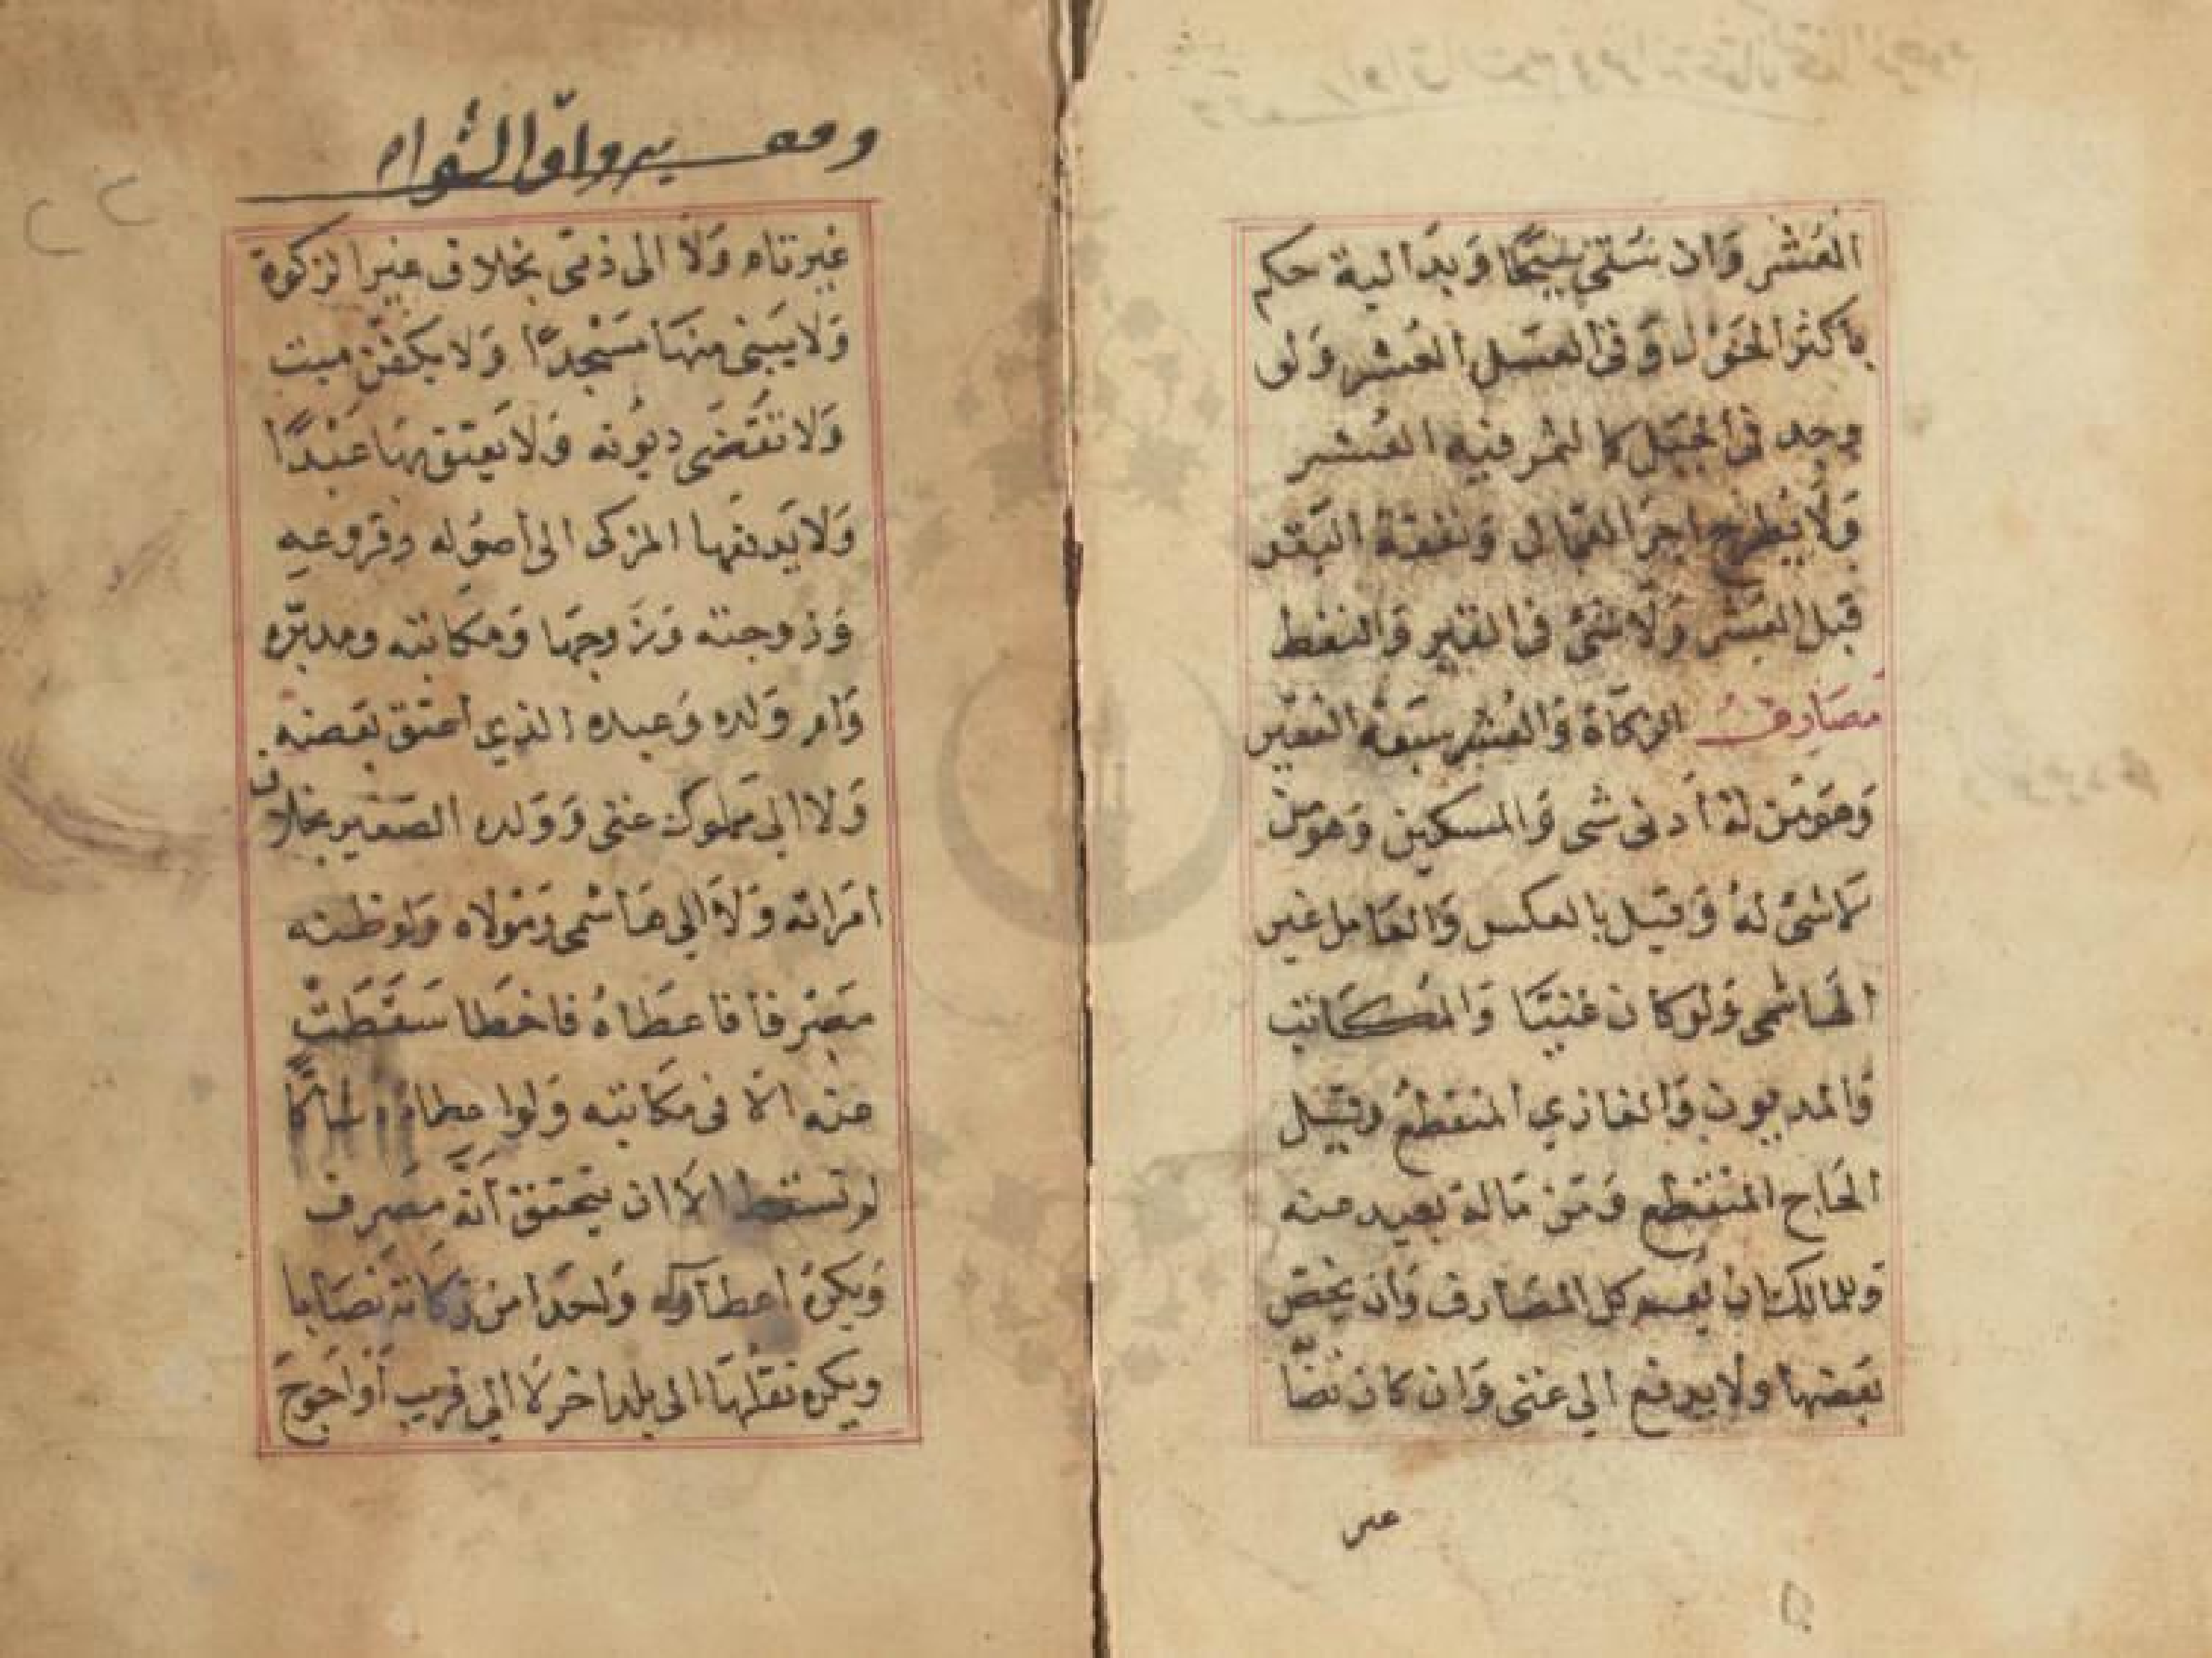 العشر وان سقي سيحا وبدالية حكم
باكثر الحول وفي العسل العشر ولو
وجد في الجبل كالثمر فيه العشر
ولا يطرح اجر العمال ونفقة البقر
قبل العشر ولا شئ في القير والنفط
مصارف الزكاة والعشر سبعة الفقير
وهو من له أدنى شى والمسكين وهو من
لا شئ له وقيل بالعكس والعامل غير
الهاشمى ولو كان غنيا والمكاتب
والمديون والغازي المنقطع وقيل
الحاج المنقطع ومن ماله بعيد عنه
وللمالك ان يعم كل المصارف وان يخص
بعضها ولا يدفع الي غنى وان كان نصا
غير
غير تام ولا الى ذمى بخلاف غير الزكوة
ولا يبنى منها مسجدا ولا يكفن ميت
ولا تقضى ديونه ولا يعتق بها عبدا
ولا يدفعها المزكى الى أصوله وفروعه
وزوجته وزوجها ومكاتبه ومدبره
وام ولده وعبده الذي اعتق بعضه
ولا الي مملوك غنى وولده الصغير بخلاف
امراته ولا الي هاشمى ومولاه ولو ظنه
مصرفا فاعطاه فاخطا سقطت
عنه الا فى مكاتبه ولو اعطاه شاكا
لم تسقط الا ان يتحقق أنه مصرف
ويكره اعطاؤه واحدا من زكاته نصابا
ويكره نقلها الى بلد اخر لا الي قريب أو احوج